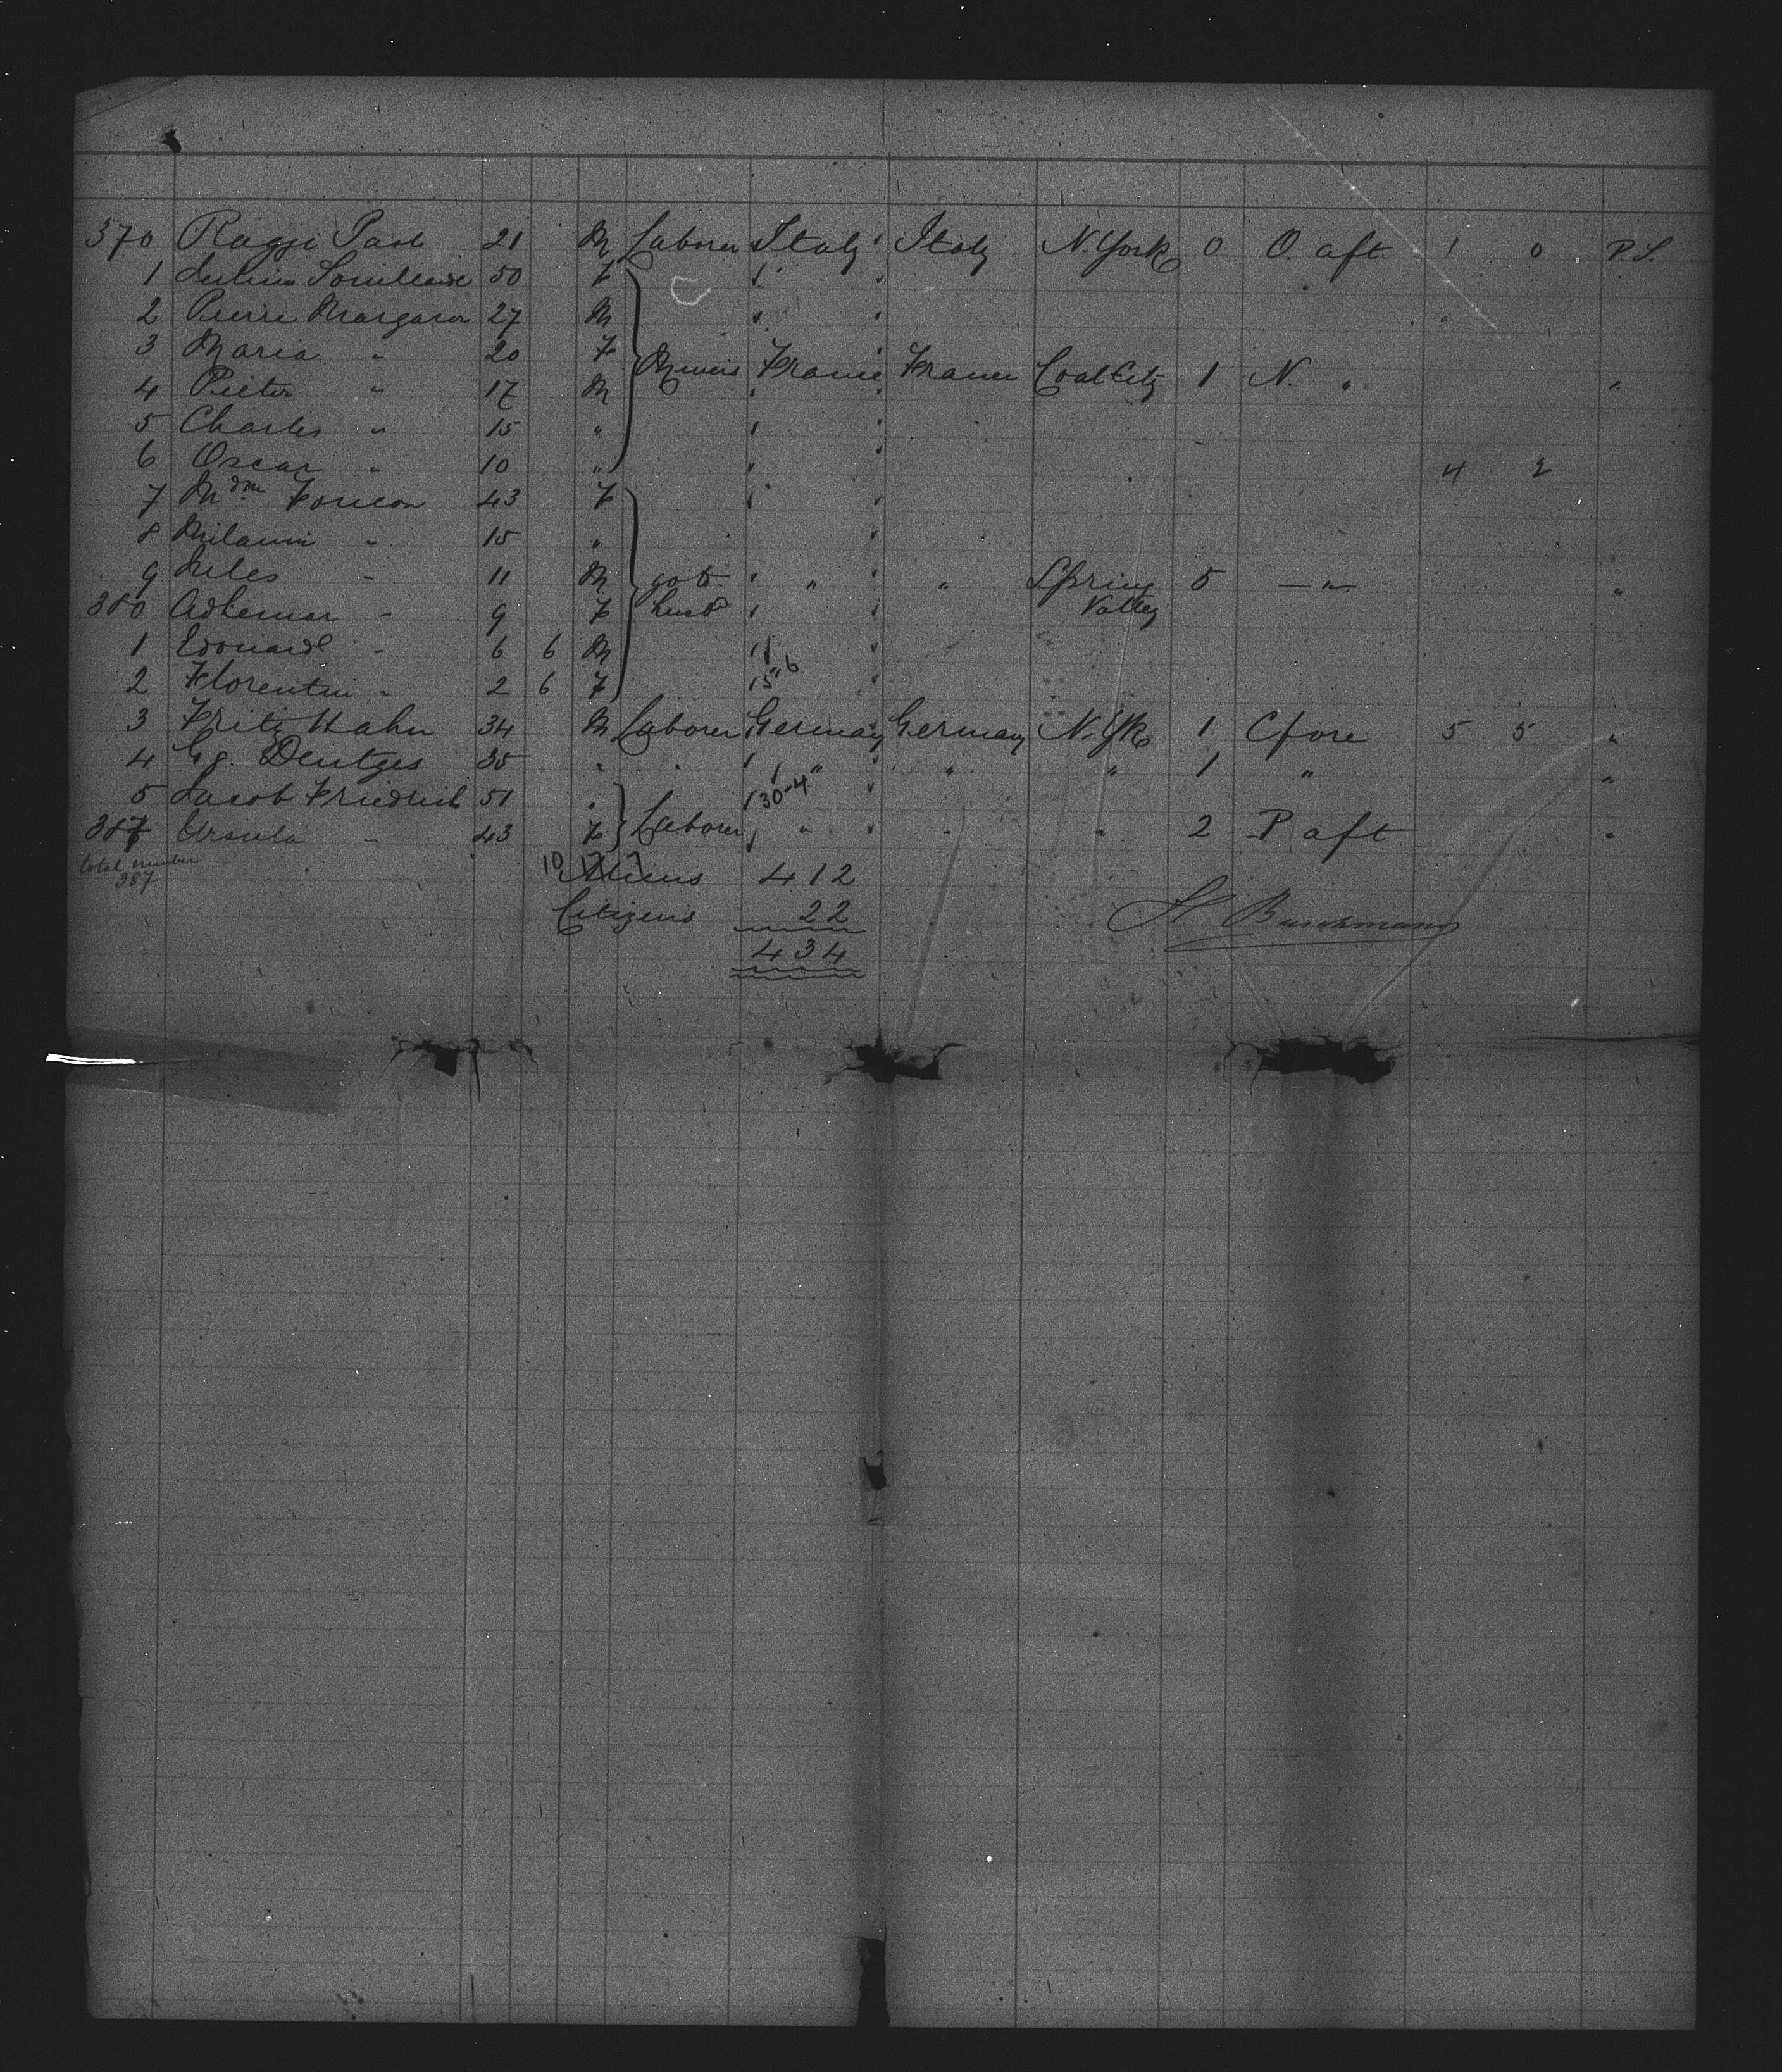 370 Raggi Paol 21 M Laborer Italy Italy N. York 0 O. aft 1 0 P.S.
1 50 F "
2 Pierre Margaron 27 M "
3 Maria " 20 F
Miners France France Coal City 1 N. " "
4 Pieter " 17 M "
5 Charles " 15 " "
6 Oscar " 10 " " 4 2
7 Mdm 43 F "
8 " 15 "
9 Jules " 11 M go to " " " Spring 5 — " — "
380 Adhemar " 9 F husb " Valley
1 Edouard " 6 6 M "
2 Florentin " 2 6 F 15 " 6
3 Fritz Hahn 34 M Laborer Germany Germany N. Yk 1 C fore 5 5 "
4 Gg. Dentges 35 " " " " " " 1 " "
5 Jacob Friedrich 51 " 30-4
387 Ursula " 43 F Laborer " " " " 2 P aft "
total number
387
10 Aliens 412
Citizens 22
434
H Buschmann